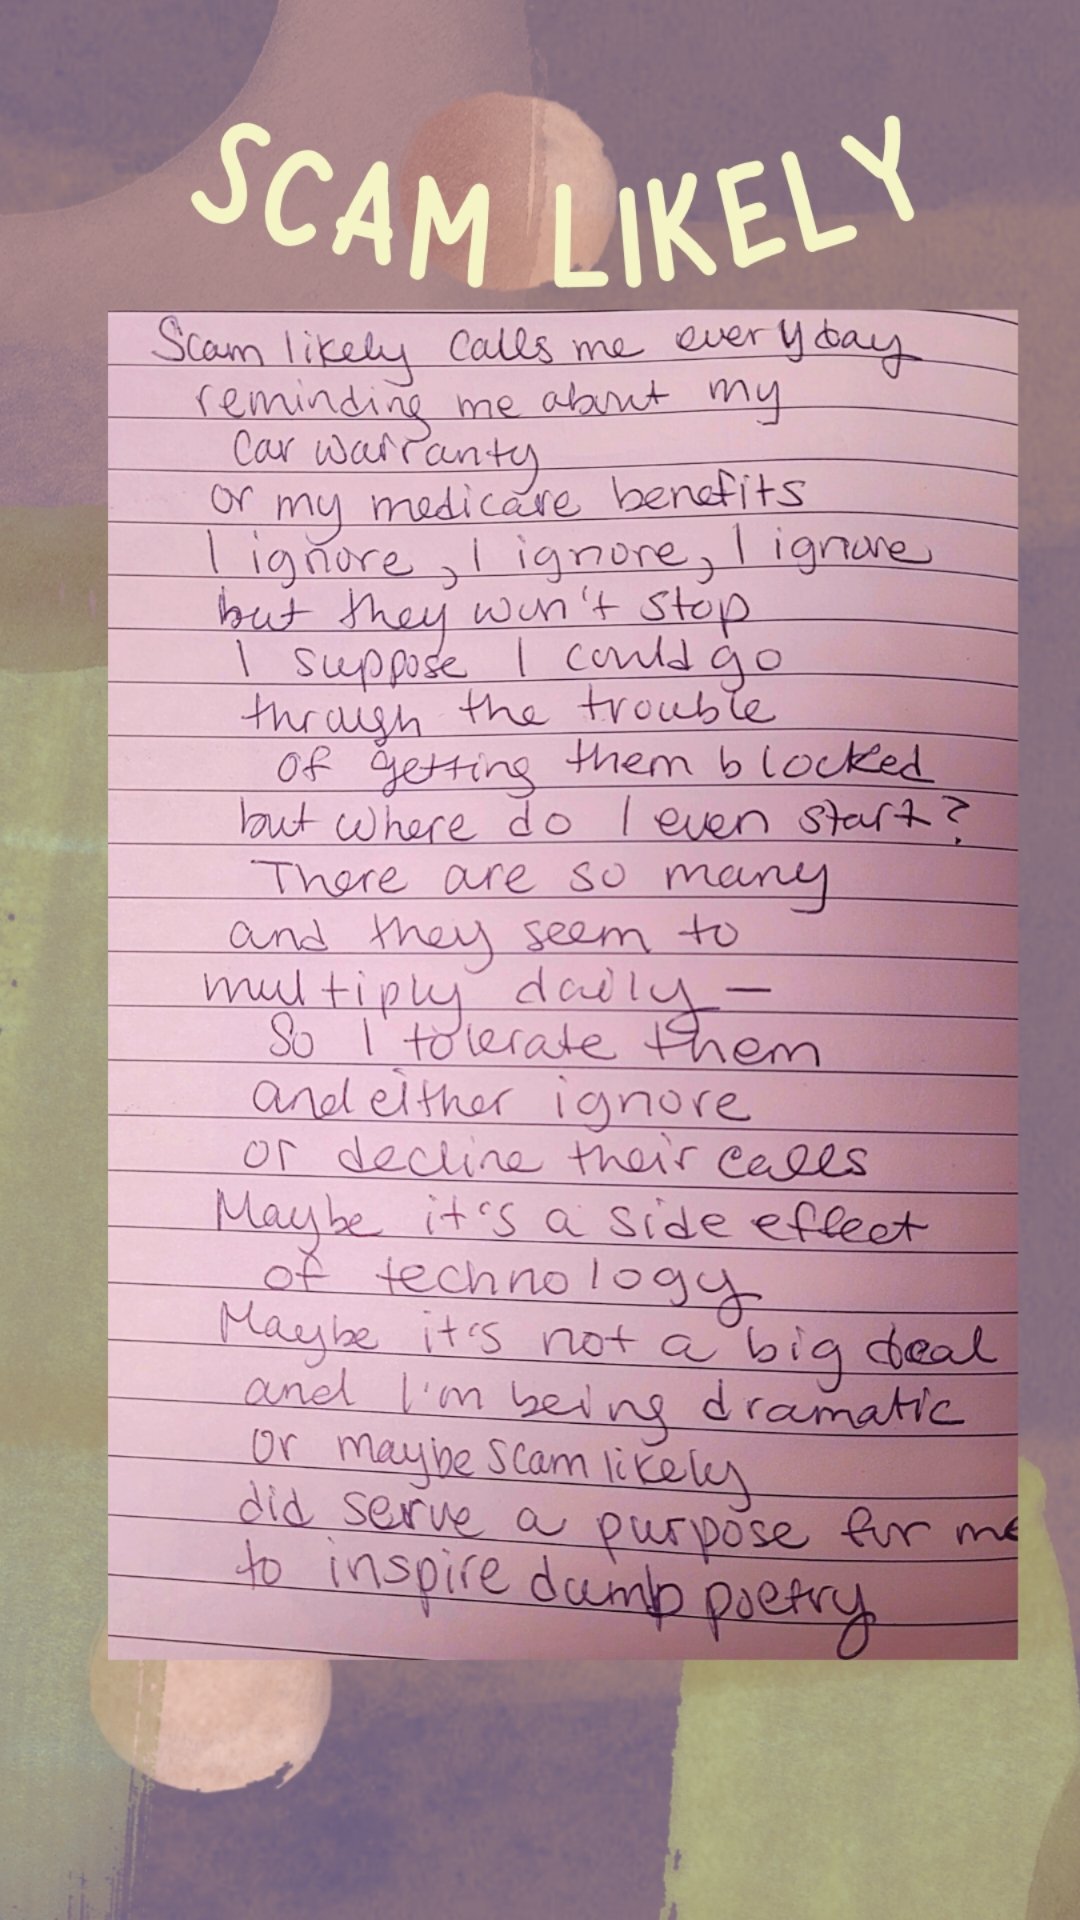 SCAM LIKELY
Scam likely calls me everyday
reminding me about my
car warranty
or my medicare benefits
I ignore, I ignore, I ignore
but they won't stop
I suppose I could go
through the trouble
of getting them blocked
but where do I even start?
There are so many
and they seem to
multiply daily —
So I tolerate them
and either ignore
or decline their calls
Maybe it's a side effect
of technology
Maybe it's not a big deal
and I'm being dramatic
or maybe scam likely
did serve a purpose for me
to inspire dumb poetry